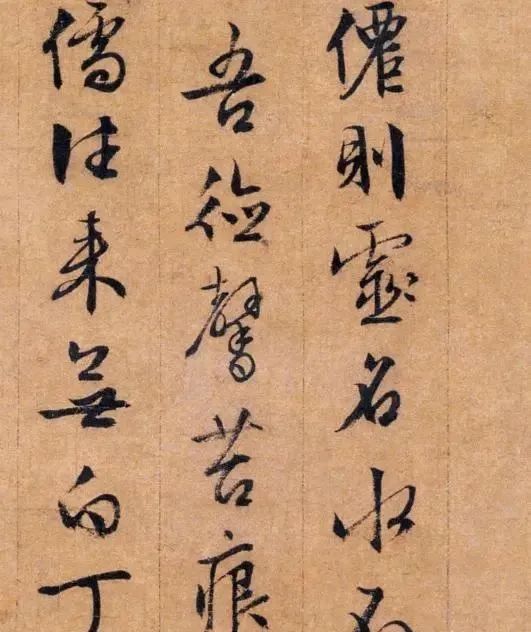 僊則靈名水不
吾德馨苔痕
儒往来無白丁